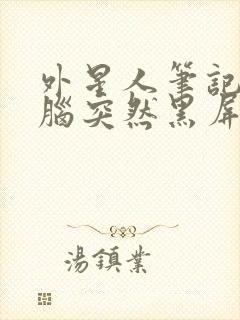 外星人筆記
腦突然黑屏
湯鎮業